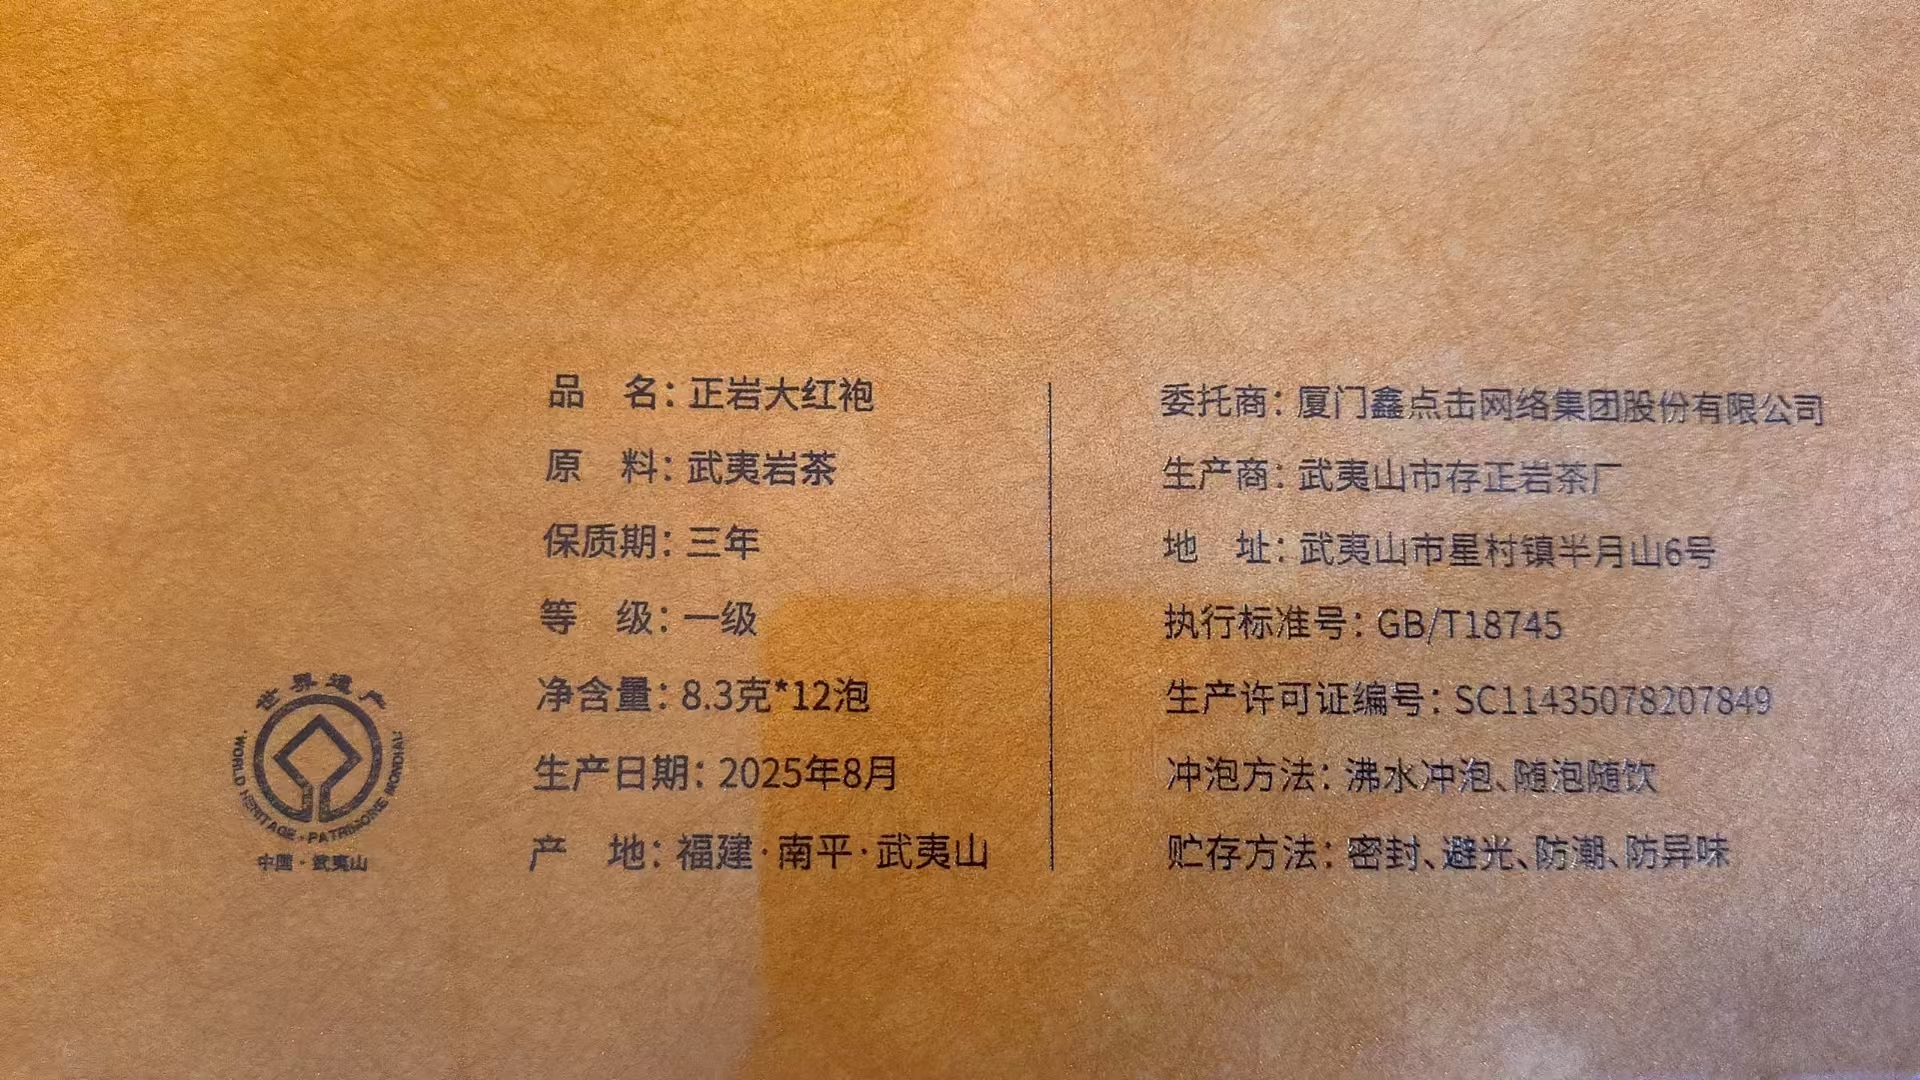 品 名：正岩大红袍
原 料：武夷岩茶
保质期：三年
等 级：一级
净含量：8.3克*12泡
生产日期：2025年8月
产 地：福建·南平·武夷山
委托商：厦门鑫点击网络集团股份有限公司
生产商：武夷山市存正岩茶厂
地 址：武夷山市星村镇半月山6号
执行标准号：GB/T18745
生产许可证编号：SC11435078207849
冲泡方法：沸水冲泡、随泡随饮
贮存方法：密封、避光、防潮、防异味
世界遗产
WORLD HERITAGE · PATRIMOINE MONDIAL
中国·武夷山